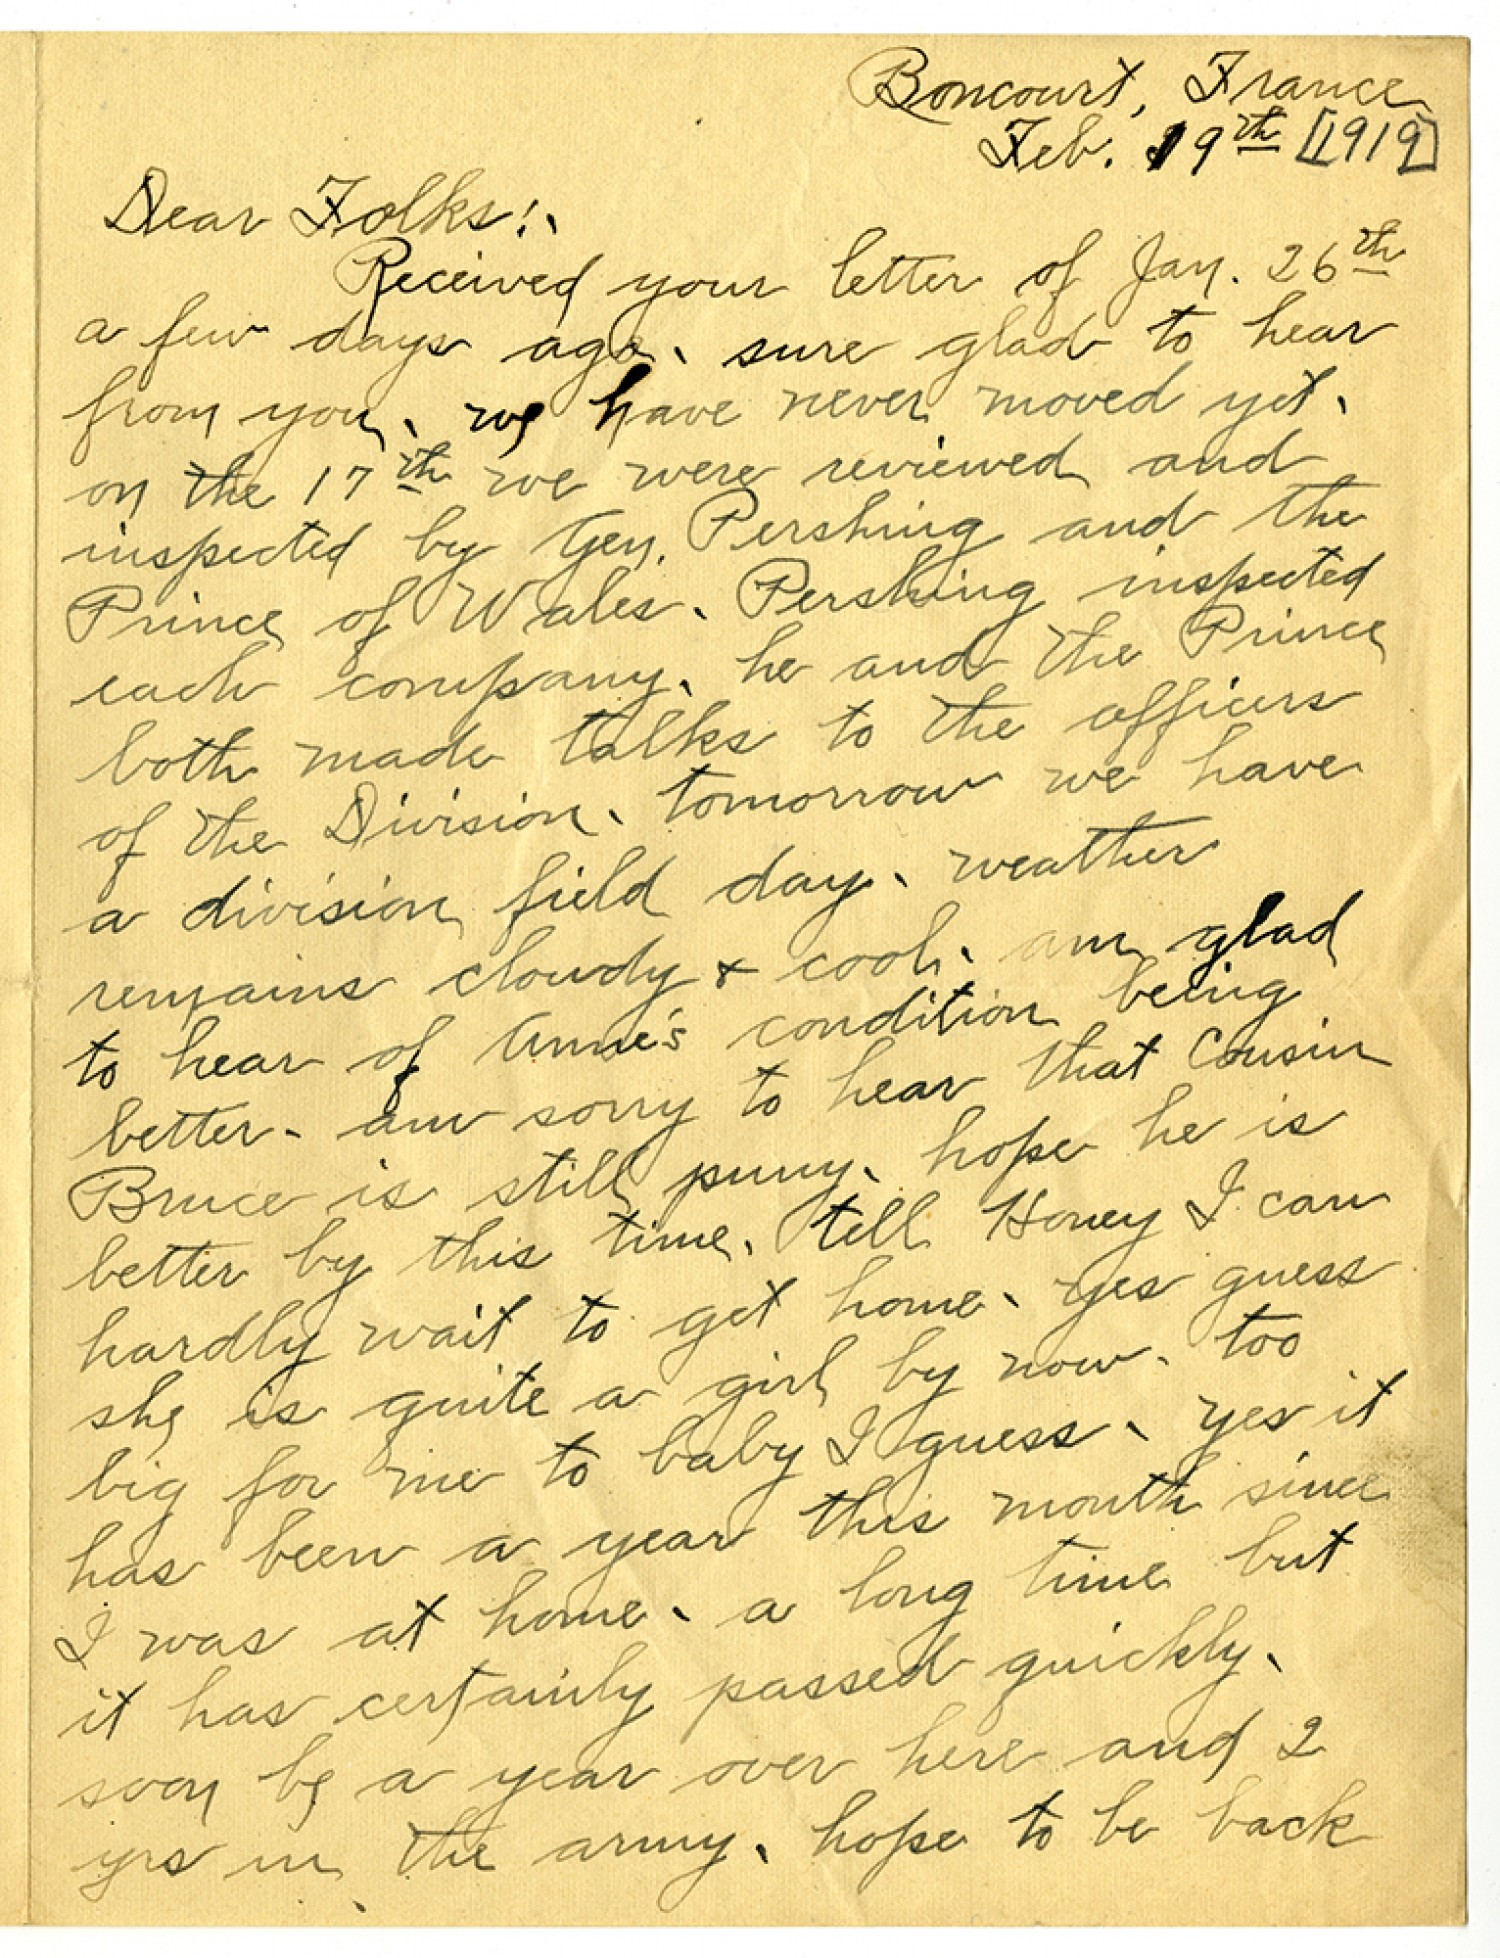 Boncourt, France
Feb. 19th [1919]
Dear Folks:
Received your letter of Jan. 26th
a few days ago, sure glad to hear
from you, we have never moved yet.
on the 17th we were reviewed and
inspected by Gen. Pershing and the
Prince of Wales. Pershing inspected
each company, he and the Prince
both made talks to the officers
of the Division, tomorrow we have
a division field day, weather
remains cloudy & cool, am glad
to hear of Anne's condition being
better. am sorry to hear that Cousin
Bruce is still puny, hope he is
better by this time, tell Honey I can
hardly wait to get home, yes guess
she is quite a girl by now, too
big for me to baby I guess, yes it
has been a year this month since
I was at home, a long time but
it has certainly passed quickly,
soon be a year over here and 2
yrs in the army, hope to be back